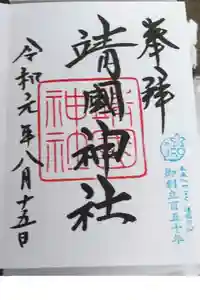 奉拝
靖國神社
令和元年八月十五日
御創立百五十年